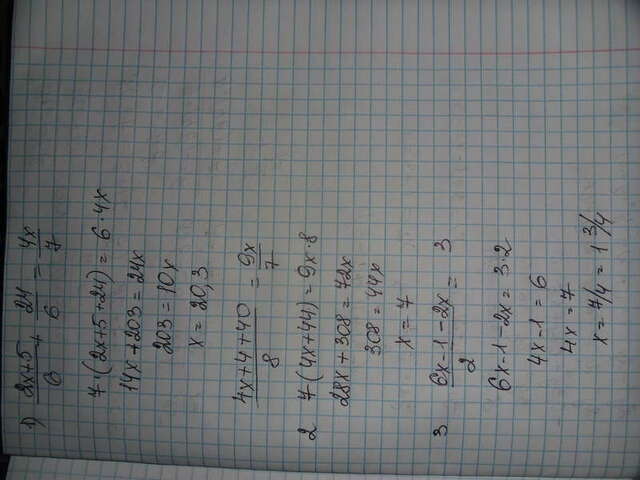 1) (2x+5)/6 + 24/6 = 4x/7
7·(2x+5+24) = 6·4x
14x+203 = 24x
203 = 10x
x = 20,3
(4x+4+40)/8 = 9x/7
2 7(4x+44) = 9x·8
28x + 308 = 72x
308 = 44x
x = 7
3 (6x-1-2x)/2 = 3
6x-1-2x = 3·2
4x-1 = 6
4x = 7
x = 7/4 = 1 3/4